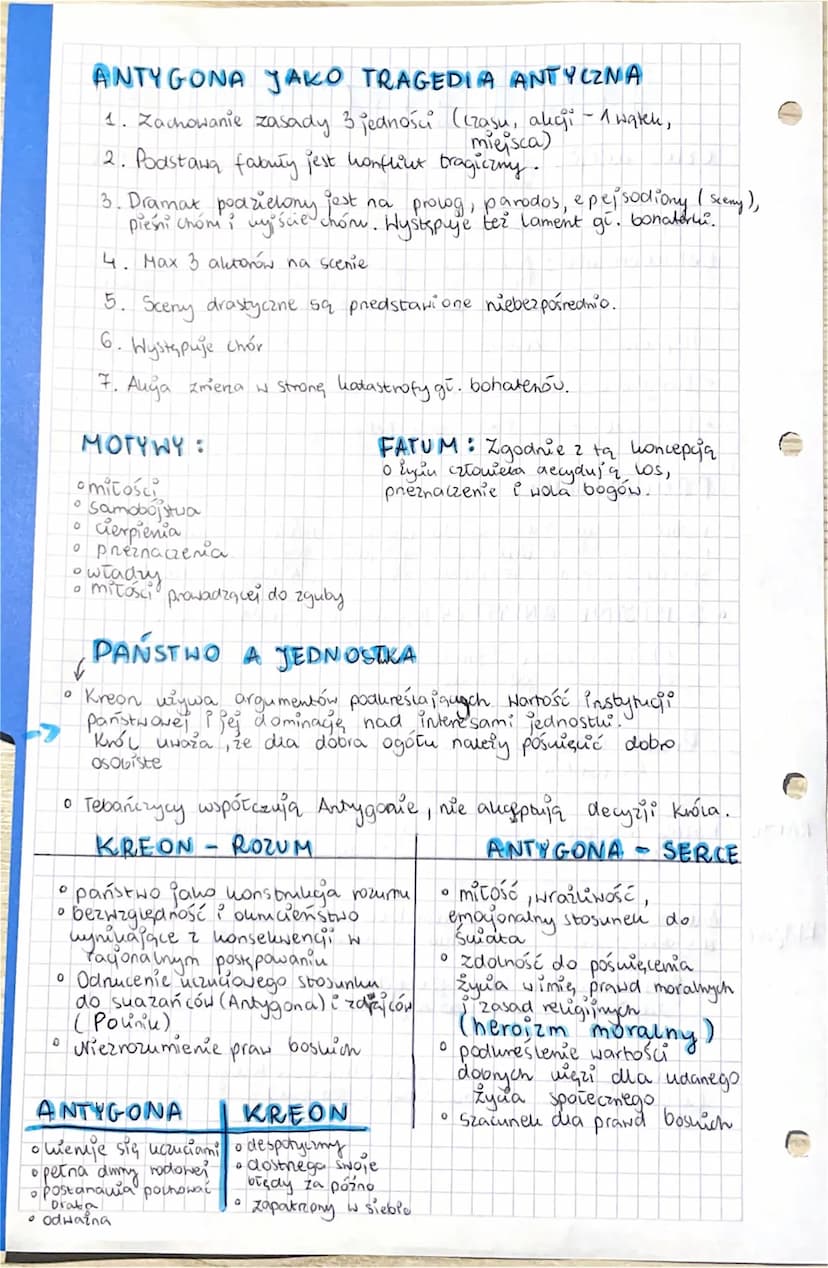 ANTYGONA JAKO TRAGEDIA ANTYCZNA
1. Zachowanie zasady 3 jedności (czasu, akcji - 1 wątek,
miejsca)
2. Podstawą fabuły jest konflikt tragiczny.
3. Dramat podzielony jest na prolog, parodos, epejsodiony (sceny),
pieśni chóru i wyjście chóru. Występuje też lament gł. bohaterki.
4. Max 3 aktorów na scenie
5. Sceny drastyczne są przedstawione niebezpośrednio.
6. Występuje chór
7. Akcja zmierza w stronę katastrofy gł. bohaterów.
MOTYWY:
° miłości
° samobójstwa
° cierpienia
° przeznaczenia
° władzy
° miłości prowadzącej do zguby
FATUM: Zgodnie z tą koncepcją
o życiu człowieka decydują los,
przeznaczenie i wola bogów.
PAŃSTWO A JEDNOSTKA
° Kreon używa argumentów podkreślających wartość instytucji
państwowej i jej dominację nad interesami jednostki.
Król uważa, że dla dobra ogółu należy poświęcić dobro
osobiste
° Tebańczycy współczują Antygonie, nie akceptują decyzji króla.
KREON - ROZUM
° państwo jako konstrukcja rozumu
° bezwzględność i okrucieństwo
wynikające z konsekwencji w
racjonalnym postępowaniu
° Odrzucenie uczuciowego stosunku
do skazańców (Antygona) i zdrajców
(Polinik)
° Niezrozumienie praw boskich
ANTYGONA - SERCE
° miłość, wrażliwość,
emocjonalny stosunek do
świata
° zdolność do poświęcenia
życia w imię prawd moralnych
i zasad religijnych
(heroizm moralny)
° podkreślenie wartości
dobrych więzi dla udanego
życia społecznego
° szacunek dla prawd boskich
ANTYGONA
° kieruje się uczuciami
° pełna dumy rodowej
° postanawia pochować
brata
° odważna
KREON
° despotyczny
° dostrzega swoje
błędy za późno
° zapatrzony w siebie